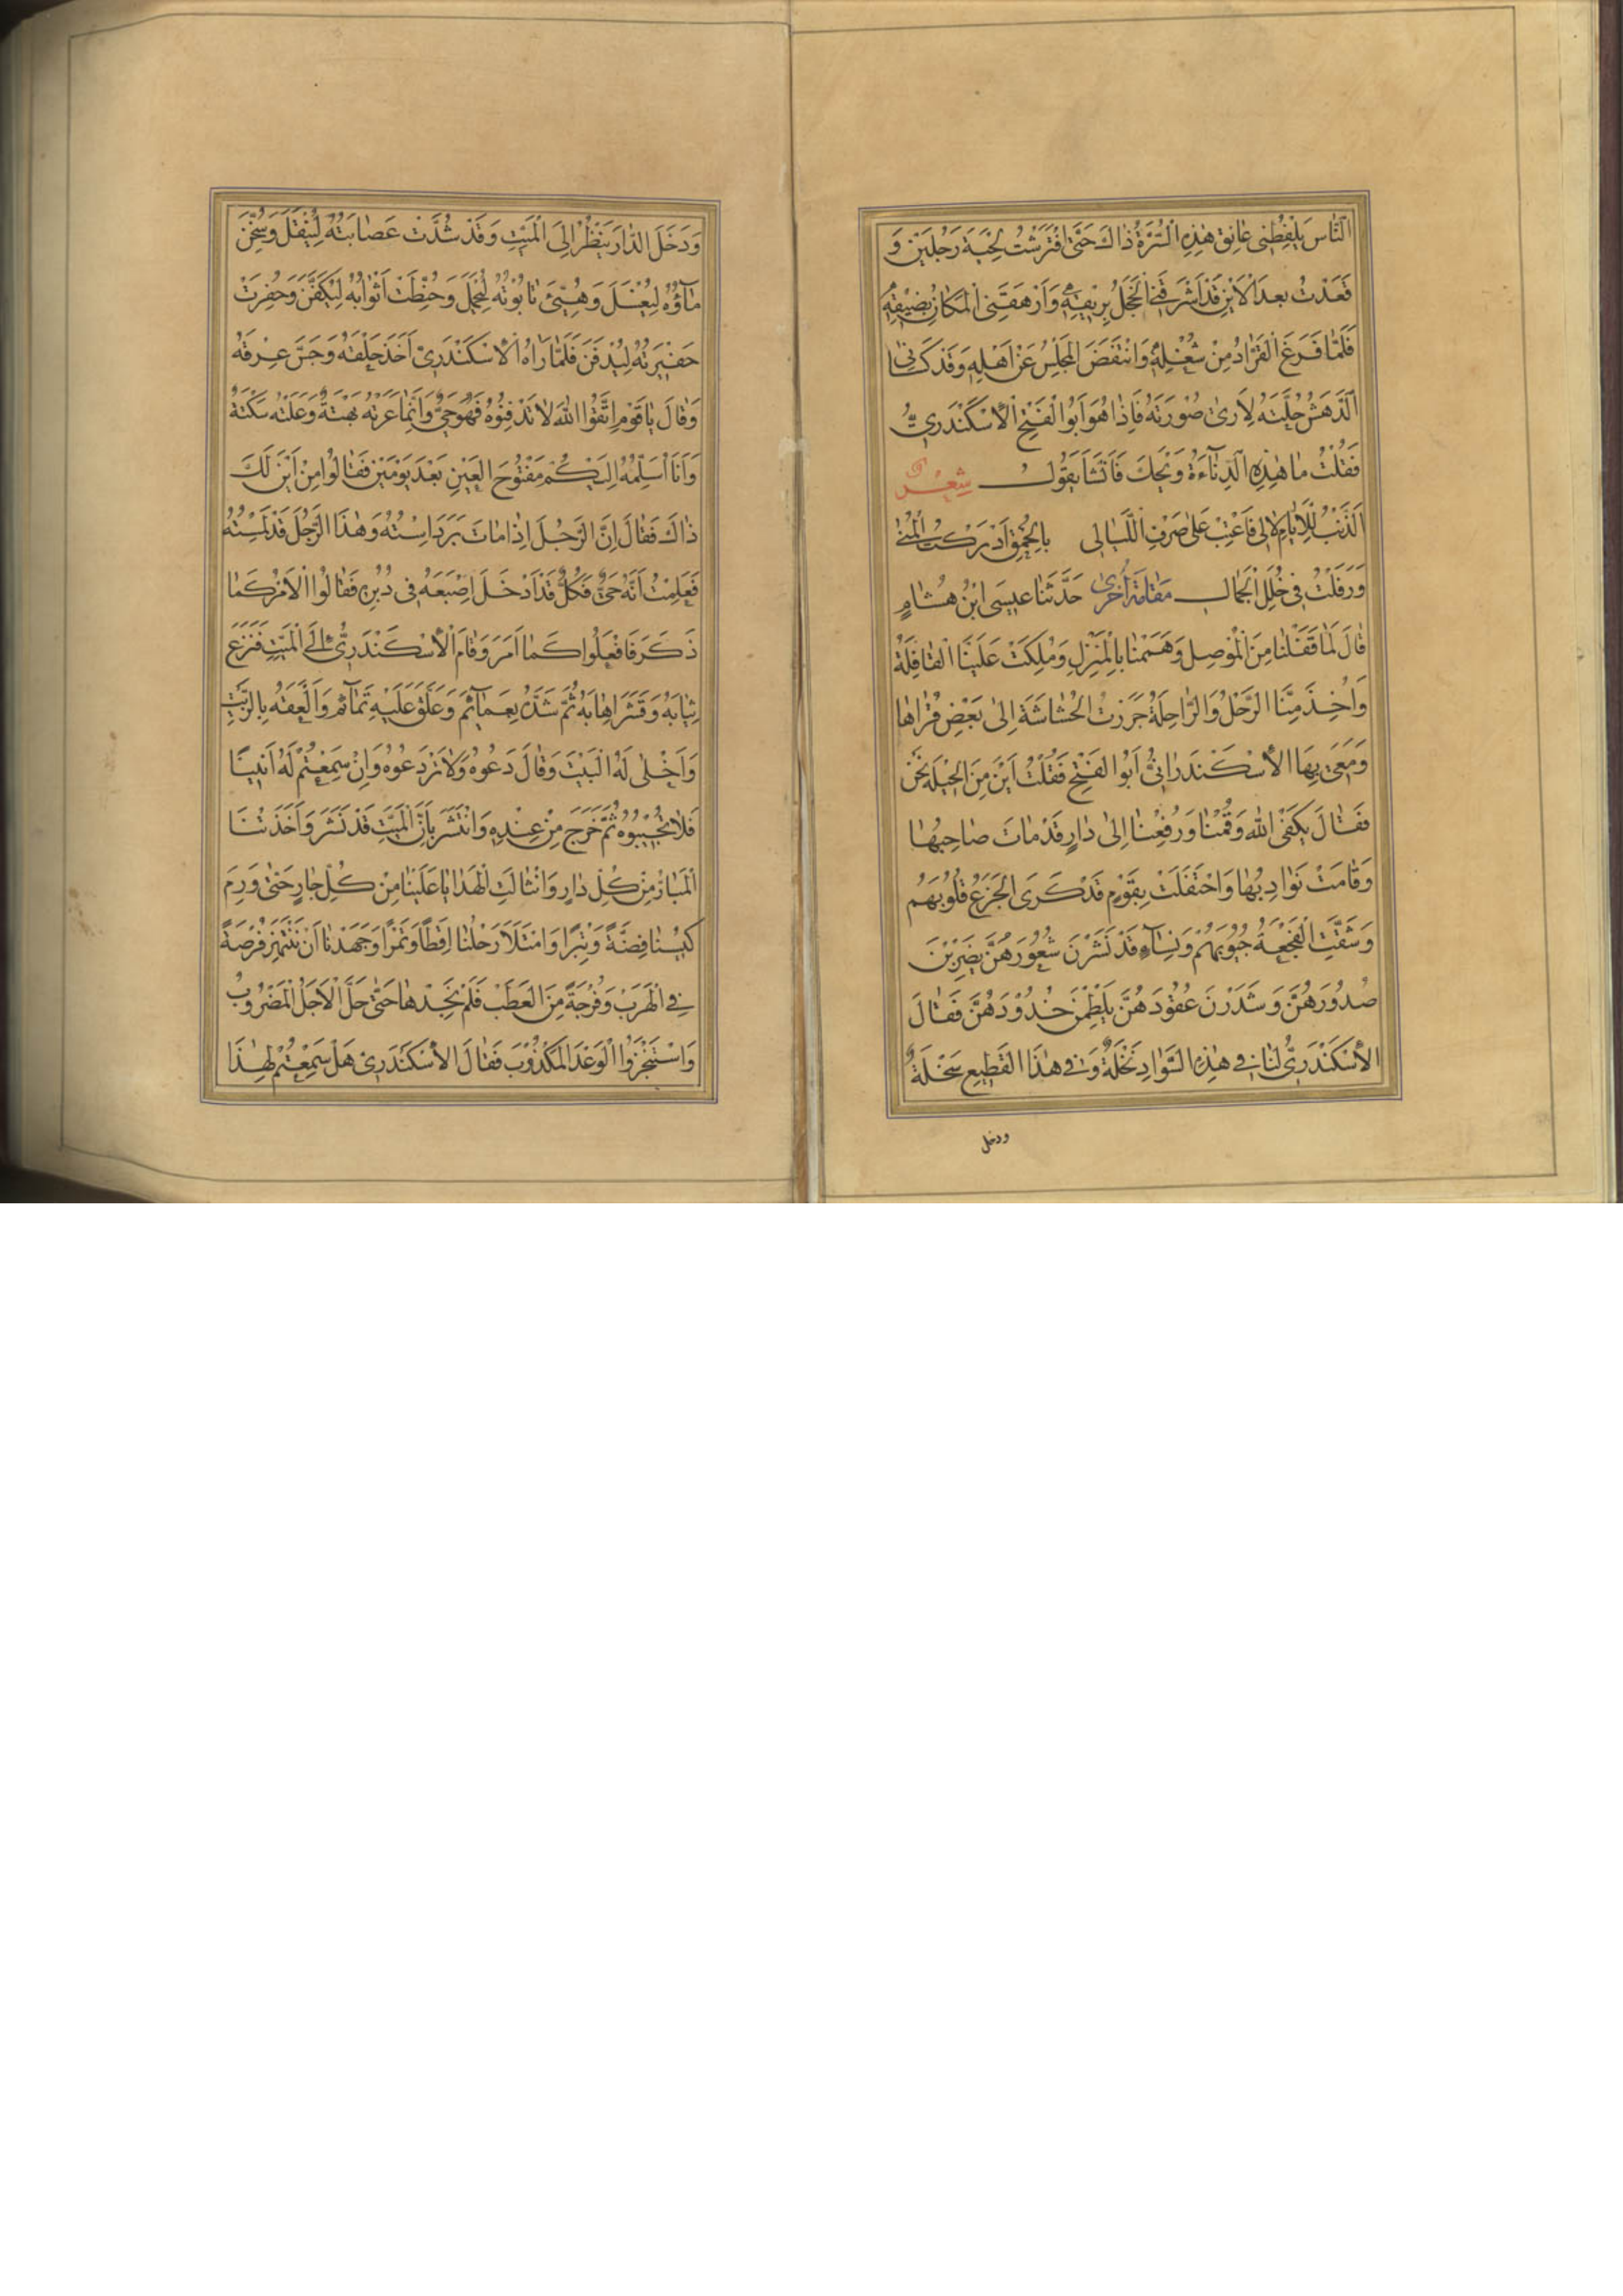 النَّاس يَلْفِظُنى عَاتِق هٰذِهِ السُّرَّةُ ذاكَ حَتّى افْتَرَشْتُ لِحْيَةَ رَجُلَيْنِ وَ
قَعَدْتُ بعد الْاَيْنِ قَدْ اَشْرَقَنِى الْخَجَلُ بِرِيقِهِ وَاَرْهَقَنِى الْمَكانُ بِضيْقِهِ
فَلَمّا فَرَغَ الْقَرّادُ مِنْ شُغْلِهِ وَانْتَفَضَ الْمَجْلِسُ عَنْ اَهْلِهِ وَقَدْ كَسَانى
الدَّهَشُ حُلَّتَهُ لِاَرىٰ صُورَتَهُ فَاِذا هُوَ اَبُوا الْفَتْحِ الْاُسْكَنْدَرِىُّ
فَقُلْتُ ما هٰذِهِ الدِّنآءَةُ وَيْحَكَ فَاَنْشَأَ يَقُولُ شِعْر
اَلذَّنْبُ لِلْاَيّامِ لالِى فَاعْتِبْ عَلىٰ صَرْفِ اللَّيالى بِالْحُمْقِ اَدْرَكْتُ الْمُنىٰ
وَرَفَلْتُ فى حُلَلِ الْجَمالِ مَقٰامَةُ اُخْرىٰ حَدَّثَنا عيسَى ابْنُ هِشامٍ
قالَ لَمّا قَفَلْنا مِنَ الْمُوْصِلِ وَهَمَمْنا بِالْمَنْزِلِ وَمُلِكَتْ عَلَيْنَا الْقافِلَةُ
وَاُخِذَ مِنَّا الرَّحْلُ وَالرّاحِلَةُ جَرَرْتُ الْحُشاشَةَ اِلىٰ بَعْضِ قُراها
وَمَعِىَ بِهَا الْاُسْكَنْدَرانِىُّ اَبُوا الْفَتْحِ فَقُلْتُ اَيْنَ مِنَ الْحيلَةِ نَحْنُ
فَقالَ يَكْفِى اللهُ وَقُمْنا وَرُفِعْنا اِلىٰ دارٍ قَدْ ماتَ صاحِبُها
وَقامَتْ نَوادِبُها وَاحْتَفَلَتْ بِقَوْمٍ قَدْ كَرَى الْجَزَعُ قُلُوبَهُمْ
وَشَقَّتِ الْفَجْعَةُ جُيُوبَهُمْ وَنِسآءٍ قَدْ نَشَرْنَ شُعُورَهُنَّ يَضْرِبْنَ
صُدُورَهُنَّ وَشَدَرْنَ عُقُودَهُنَّ يَلْطِمْنَ خُدُوْدَهُنَّ فَقالَ
الْاُسْكَنْدَرِىُّ لَنا فِى هٰذِهِ السَّوادِ نَخْلَةٌ وَفِى هٰذَا الْقَطِيعِ سَخْلَةٌ
ودخل
وَدَخَلَ الدّارَ يَنْظُرُ اِلَى الْمَيِّتِ وَقَدْ شُدَّتْ عَصابَتُهُ لِيُنْقَلَ وَسُخِّنَ
مآؤُهُ لِيُغْسَلَ وَهُيِّئَ تابُوْتُهُ لِيُحْمَلَ وَخُيِّطَتْ اَثْوابُهُ لِيُكَفَّنَ وَحُفِرَتْ
حَفِيْرَتُهُ لِيُدْفَنَ فَلَمّا رَاٰهُ الْاُسْكَنْدَرِىُّ اَخَذَ حَلْقَهُ وَجَسَّ عِرْقَهُ
وَقالَ يا قَوْمِ اتَّقُوا اللهَ لا تَدْفِنُوهُ فَهُوَ حَىٌّ وَاِنَّما عَرَتْهُ بَهْتَةٌ وَعَلَتْهُ سَكْتَةٌ
وَاَنَا اُسَلِّمُهُ اِلَيْكُمْ مَفْتُوحَ الْعَيْنِ بَعْدَ يَوْمَيْنِ فَقالُوا مِنْ اَيْنَ لَكَ
ذاكَ فَقالَ اِنَّ الرَّجُلَ اِذا ماتَ بَرَدَ اِسْتُهُ وَهٰذَا الرَّجُلُ قَدْ لَمَسْتُهُ
فَعَلِمْتُ اَنَّهُ حَىٌّ فَكُلٌّ قَدْ اَدْخَلَ اِصْبَعَهُ فى دُبُرِهِ فَقالُوا الْاَمْرُ كَما
ذَكَرَ فَافْعَلُوا كَما اَمَرَ وَقامَ الْاُسْكَنْدَرِىُّ اِلَى الْمَيِّتِ فَنَزَعَ
ثِيابَهُ وَقَشَرَ اِهابَهُ ثُمَّ شَدَّ لَهُ بِعَمآئِمَ وَعَلَّقَ عَلَيْهِ تَمآئِمَ وَاَلْعَقَهُ بِالزَّيْتِ
وَاَخْلىٰ لَهُ الْبَيْتَ وَقالَ دَعُوهُ وَلا تَرْدَعُوهُ وَاِنْ سَمِعْتُمْ لَهُ اَنينًا
فَلا تُجيبُوهُ ثُمَّ خَرَجَ مِنْ عِنْدِهِ وَانْتَشَرَ بِاَنَّ الْمَيِّتَ قَدْ نَشَرَ وَاَخَذَتْنَا
الْمَبارُّ مِنْ كُلِّ دارٍ وَانْثالَتِ الْهَدايا عَلَيْنا مِنْ كُلِّ جارٍ حَتّىٰ وَرِمَ
كِيسُنا فِضَّةً وَتِبْرًا وَامْتَلَاَ رَحْلُنا اِقِطًا وَتَمْرًا وَجَهَدْنا اَنْ نَنْتَهِزَ فُرْصَةً
فِى الْهَرَبِ وَفُرْجَةً مِنَ الْعَطَبِ فَلَمْ نَجِدْها حَتّىٰ حَلَّ الْاَجَلُ الْمَضْرُوبُ
وَاسْتَنْجَزُوا الْوَعْدَ الْمَكْذُوبَ فَقالَ الْاُسْكَنْدَرِىُّ هَلْ سَمِعْتُمْ لِهٰذَا